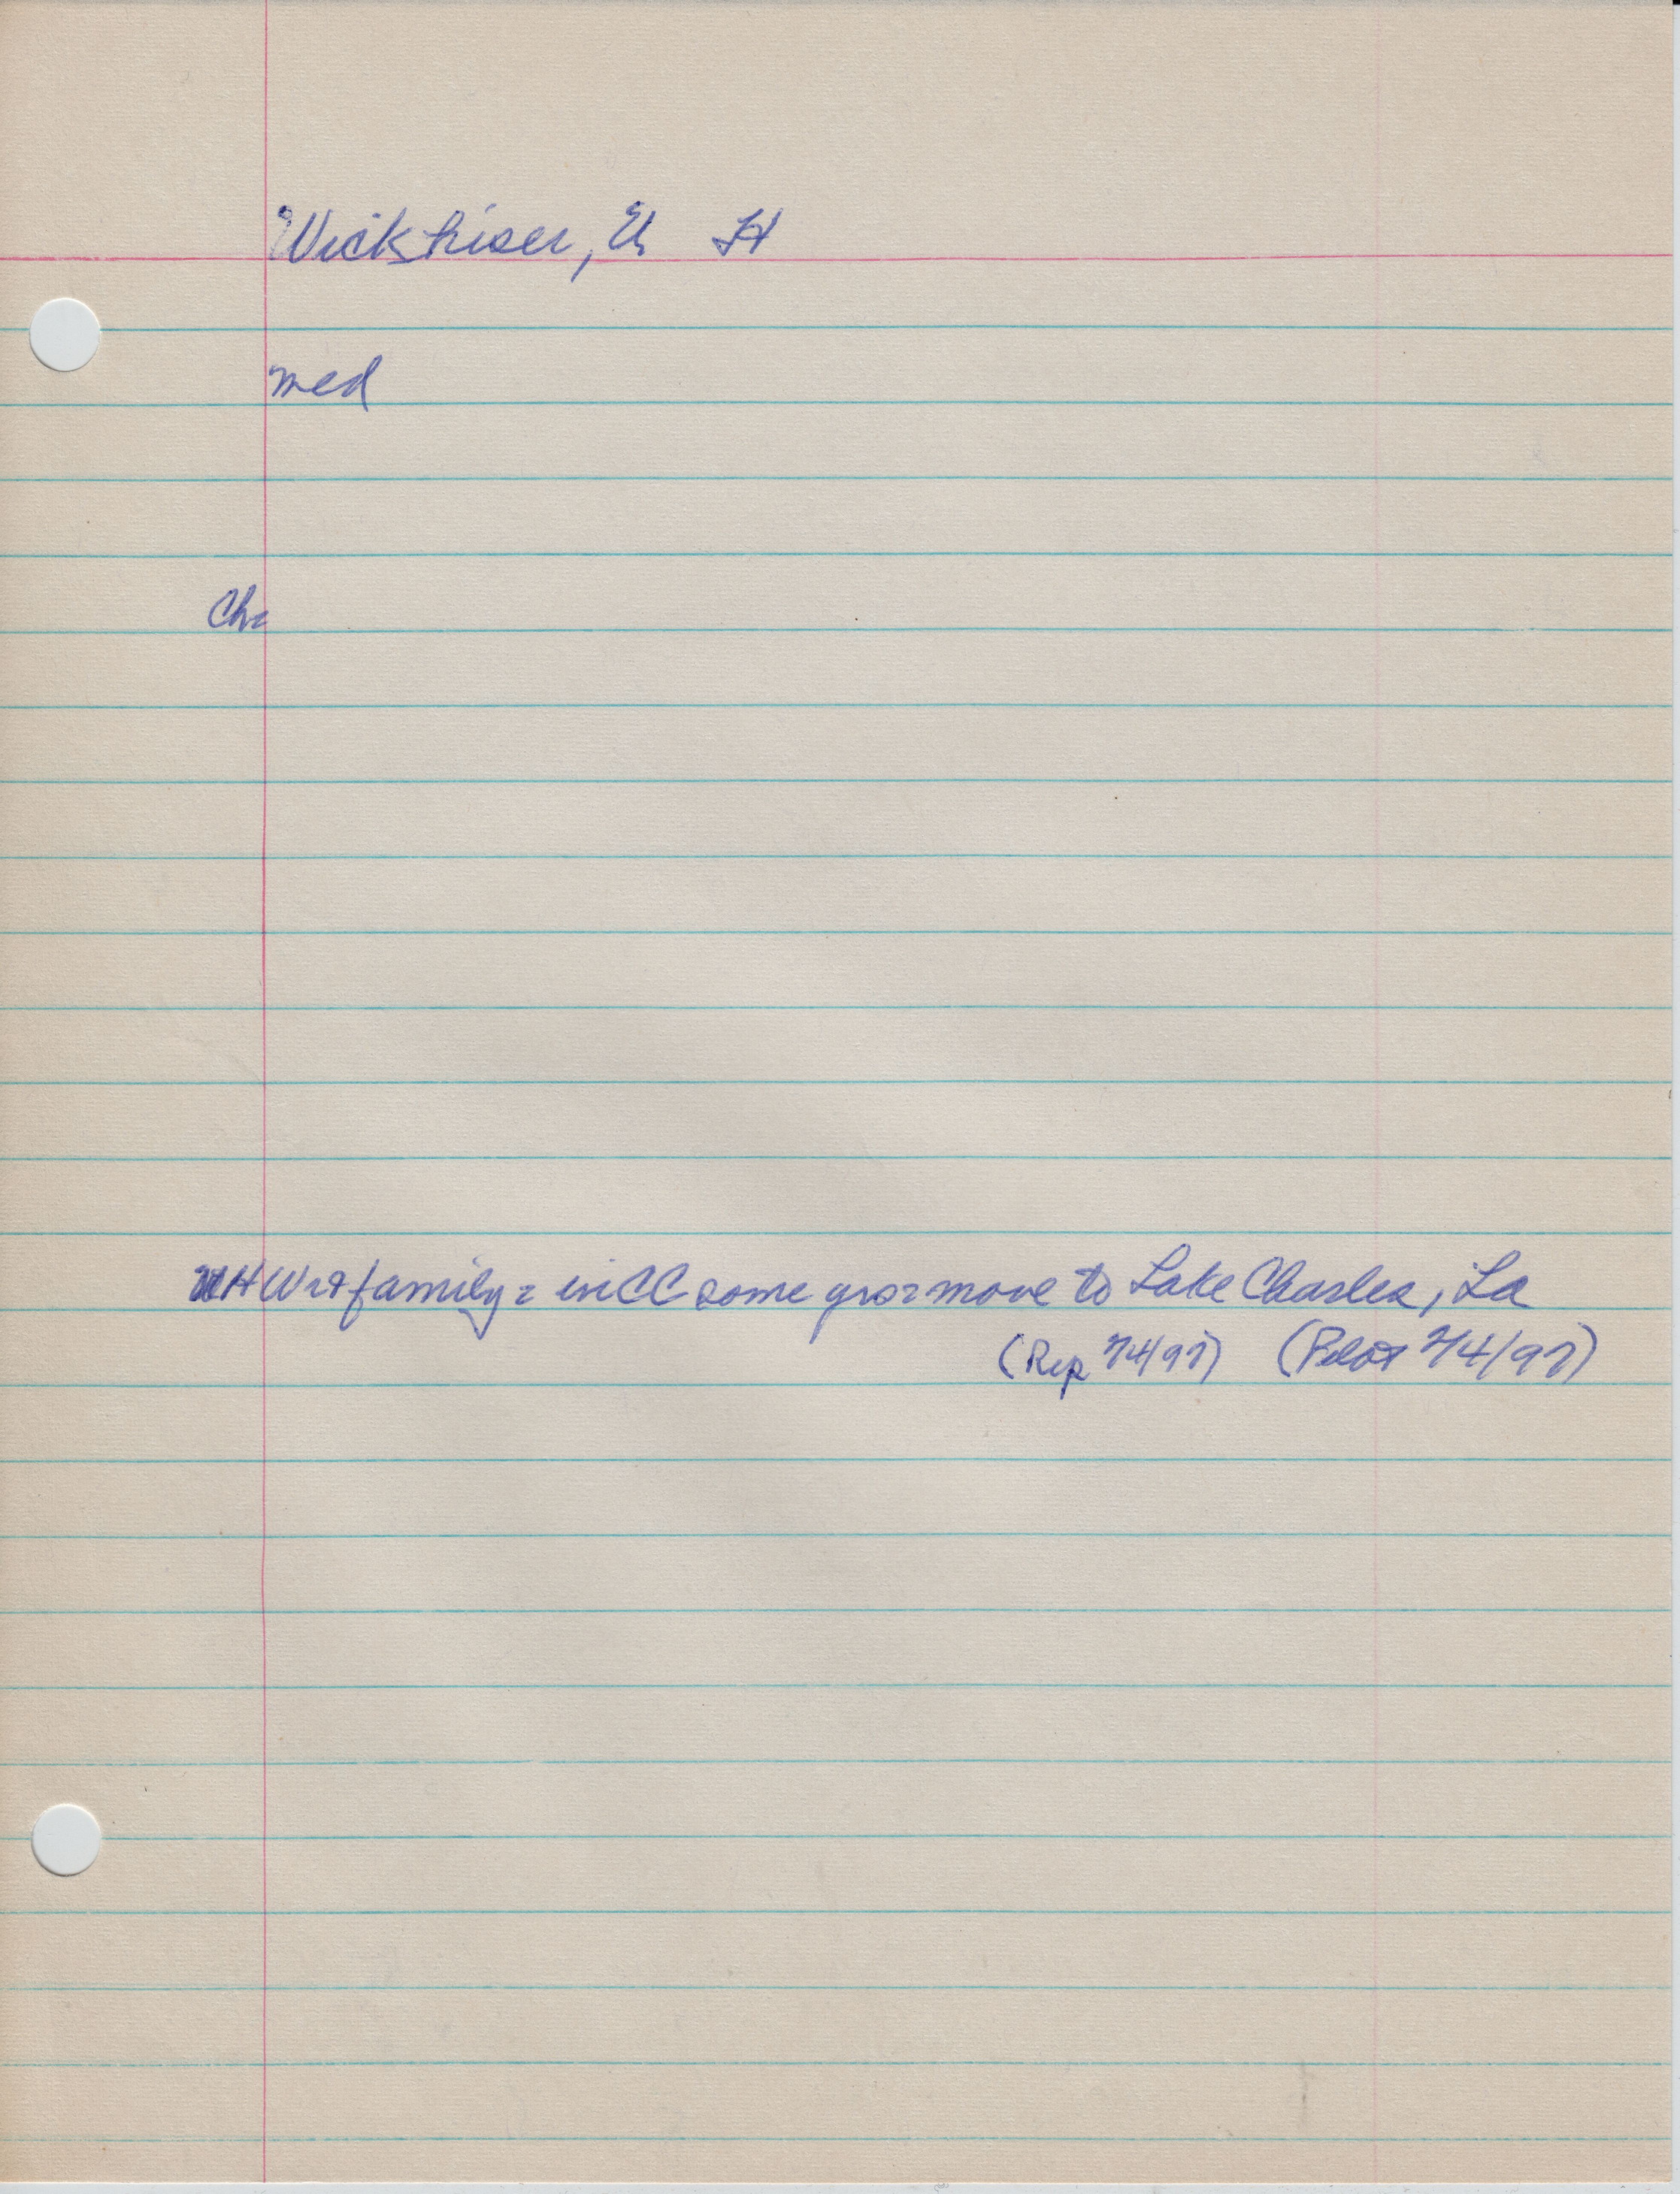 Wickshiser, H
med
Ch=
H W & family = in CC some yrs = move to Lake Charles, La
(Rep 2/4/97) (Pilot 2/4/97)